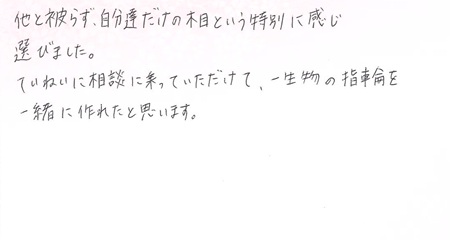 他と被らず、自分達だけの木目という特別に感じ
選びました。
ていねいに相談に乗っていただけて、一生物の指輪を
一緒に作れたと思います。